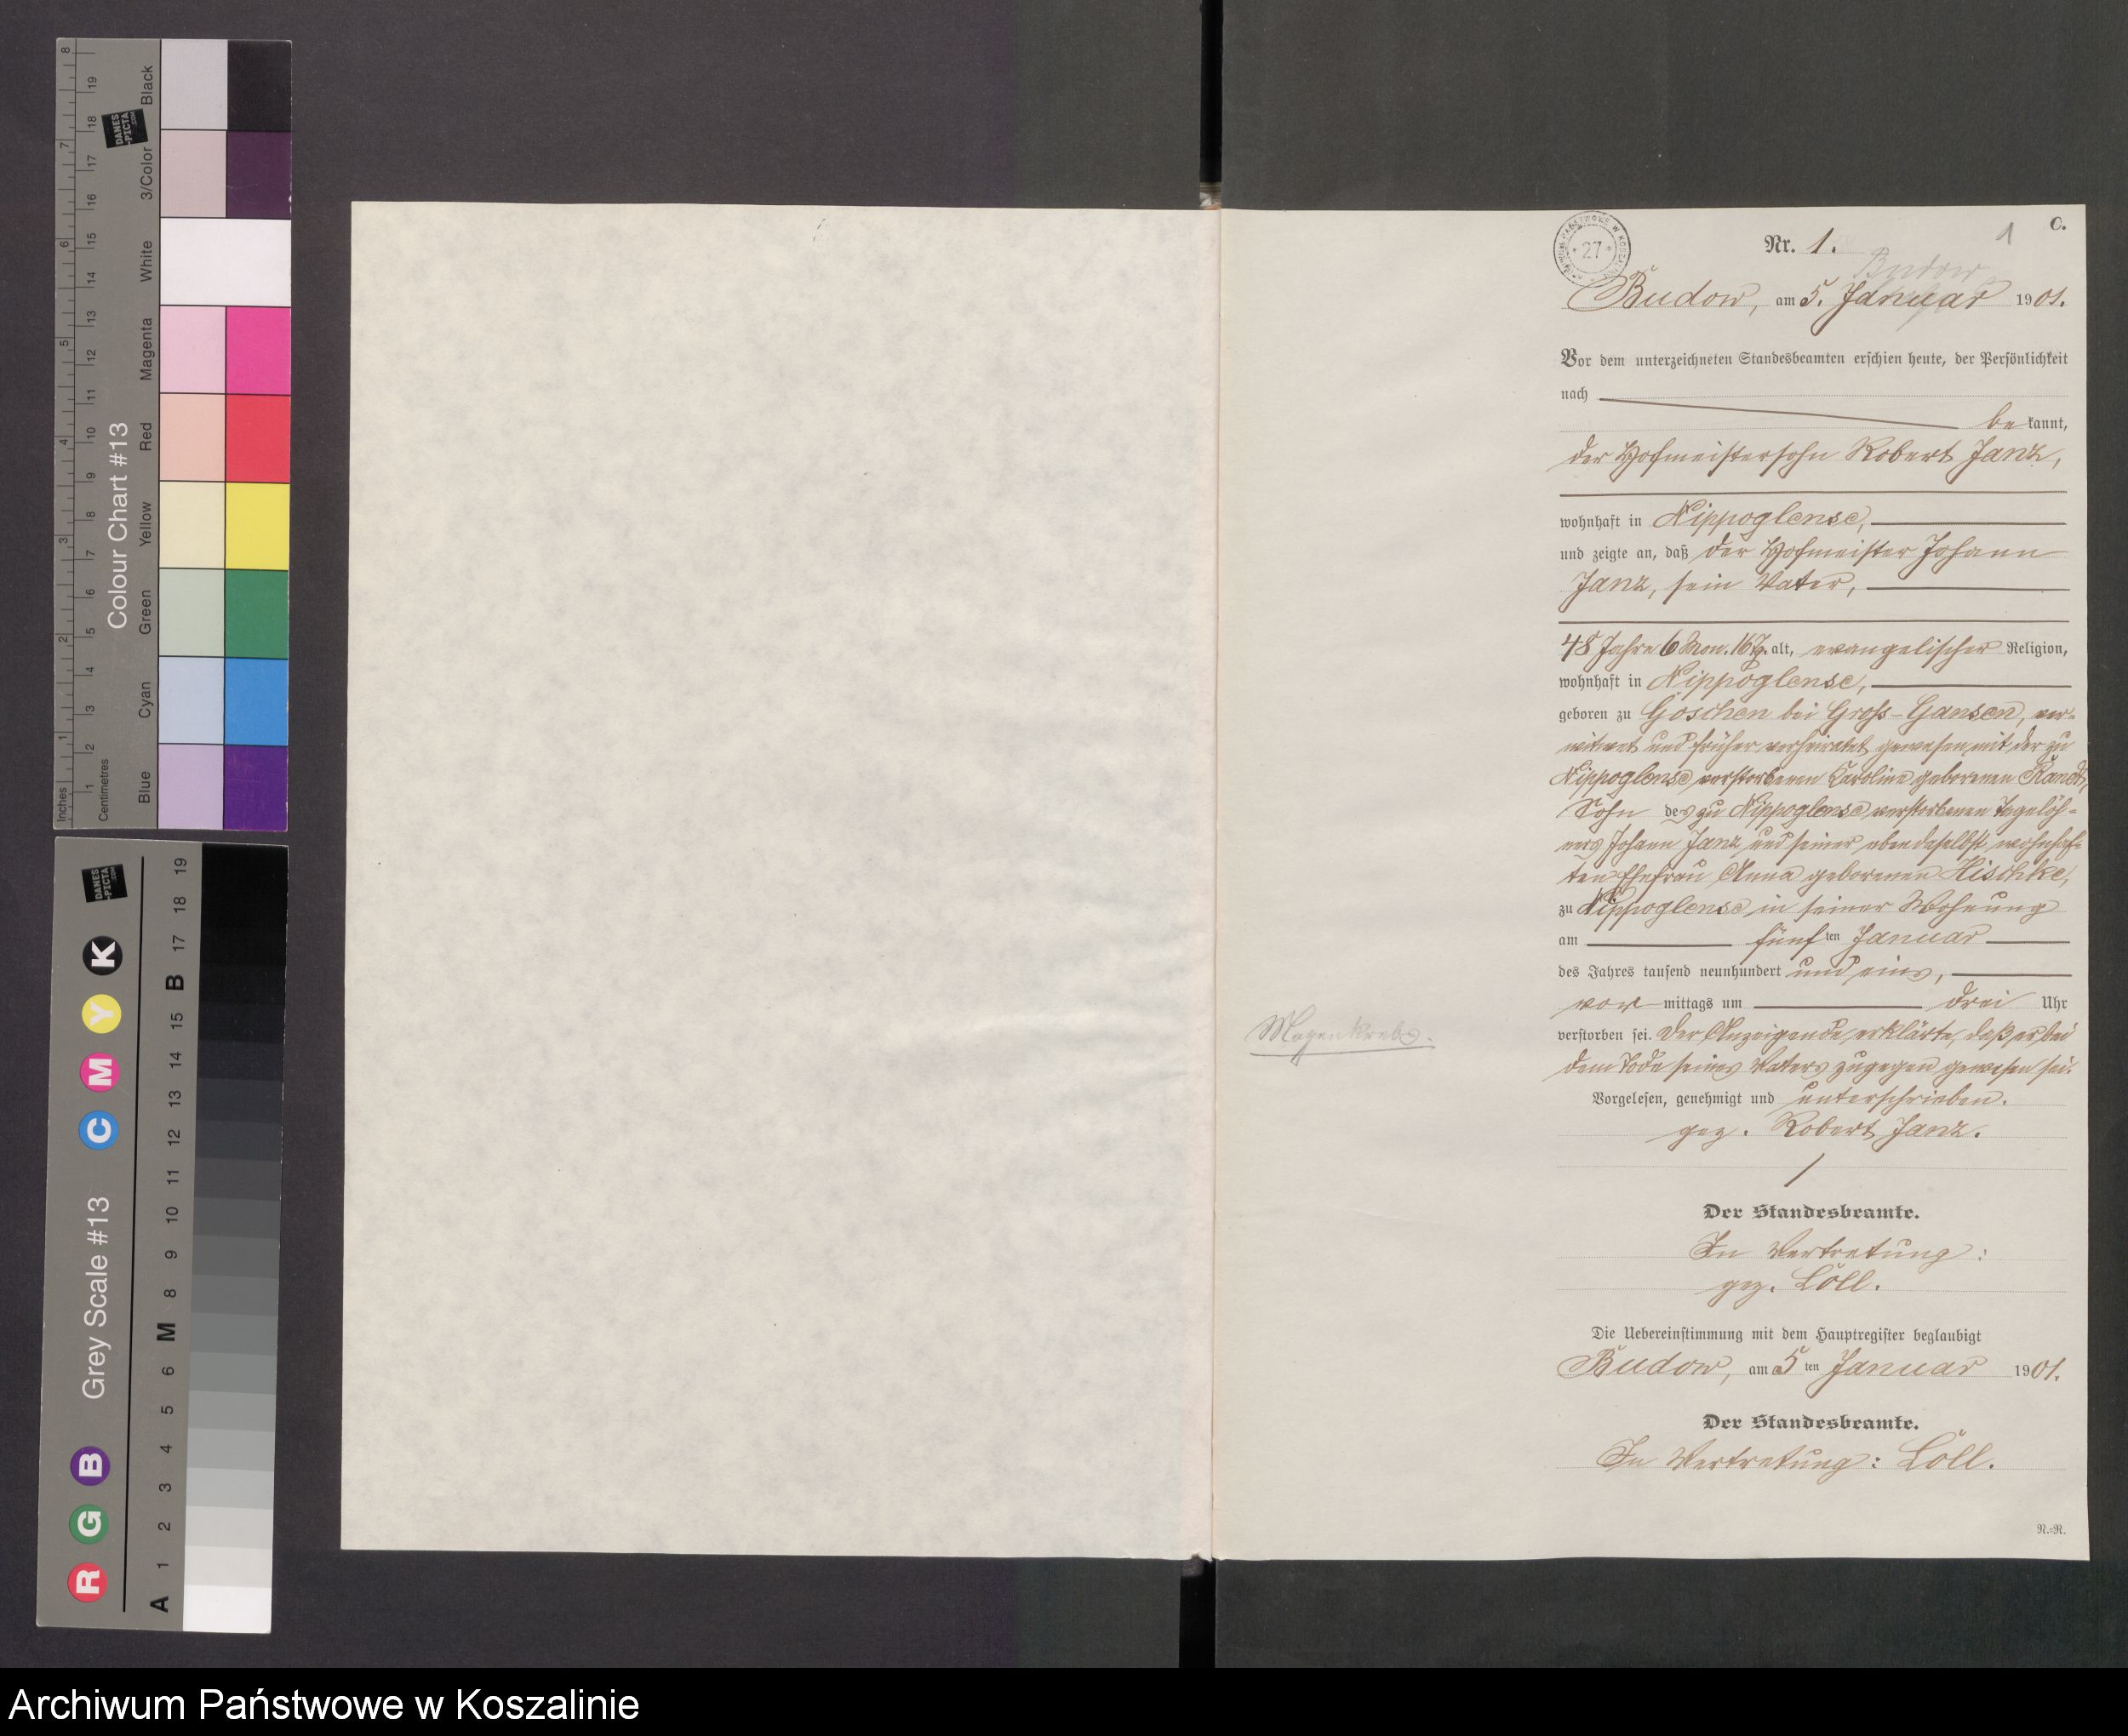 8
7
6
5
4
3
2
1
Inches
19
18
17
16
15
14
13
12
11
10
9
8
7
6
5
4
3
2
1
Centimetres
DANES
-PICTA
.COM
Colour Chart #13
Black
3/Color
White
Magenta
Red
Yellow
Green
Cyan
Blue
DANES
-PICTA
.COM
Grey Scale #13
R G B C M Y K
A 1 2 3 4 5 6 M 8 9 10 11 12 13 14 15 B 17 18 19
27
C.
1
Nr. 1.
Budow
Budow, am 5. Januar 1901.
Vor dem unterzeichneten Standesbeamten erschien heute, der Persönlichkeit
nach
bekannt,
der Hofmeistersohn Robert Janz,
wohnhaft in Nippoglense,
und zeigte an, daß der Hofmeister Johann
Janz, sein Vater,
48 Jahre 6 Mon. 16 Tg. alt, evangelischer Religion,
wohnhaft in Nippoglense,
geboren zu Goschen bei Gross-Gansen, ver-
witwet und früher verheiratet gewesen mit der zu
Nippoglense verstorbenen Caroline geborenen
Sohn des zu Nippoglense verstorbenen Tagelöh-
ners Johann Janz und seiner ebendaselbst wohnhaf-
ten Ehefrau Anna geborenen Hischke,
zu Nippoglense in seiner Wohnung
am fünften Januar
des Jahres tausend neunhundert und eins,
vormittags um drei Uhr
verstorben sei. Der Anzeigende erklärte, daß er bei
dem Tode seines Vaters zugegen gewesen sei.
Magenkrebs.
Vorgelesen, genehmigt und unterschrieben.
gez. Robert Janz.
Der Standesbeamte.
In Vertretung:
gez. Löll.
Die Uebereinstimmung mit dem Hauptregister beglaubigt
Budow, am 5ten Januar 1901.
Der Standesbeamte.
In Vertretung: Löll.
N.-R.
Archiwum Państwowe w Koszalinie